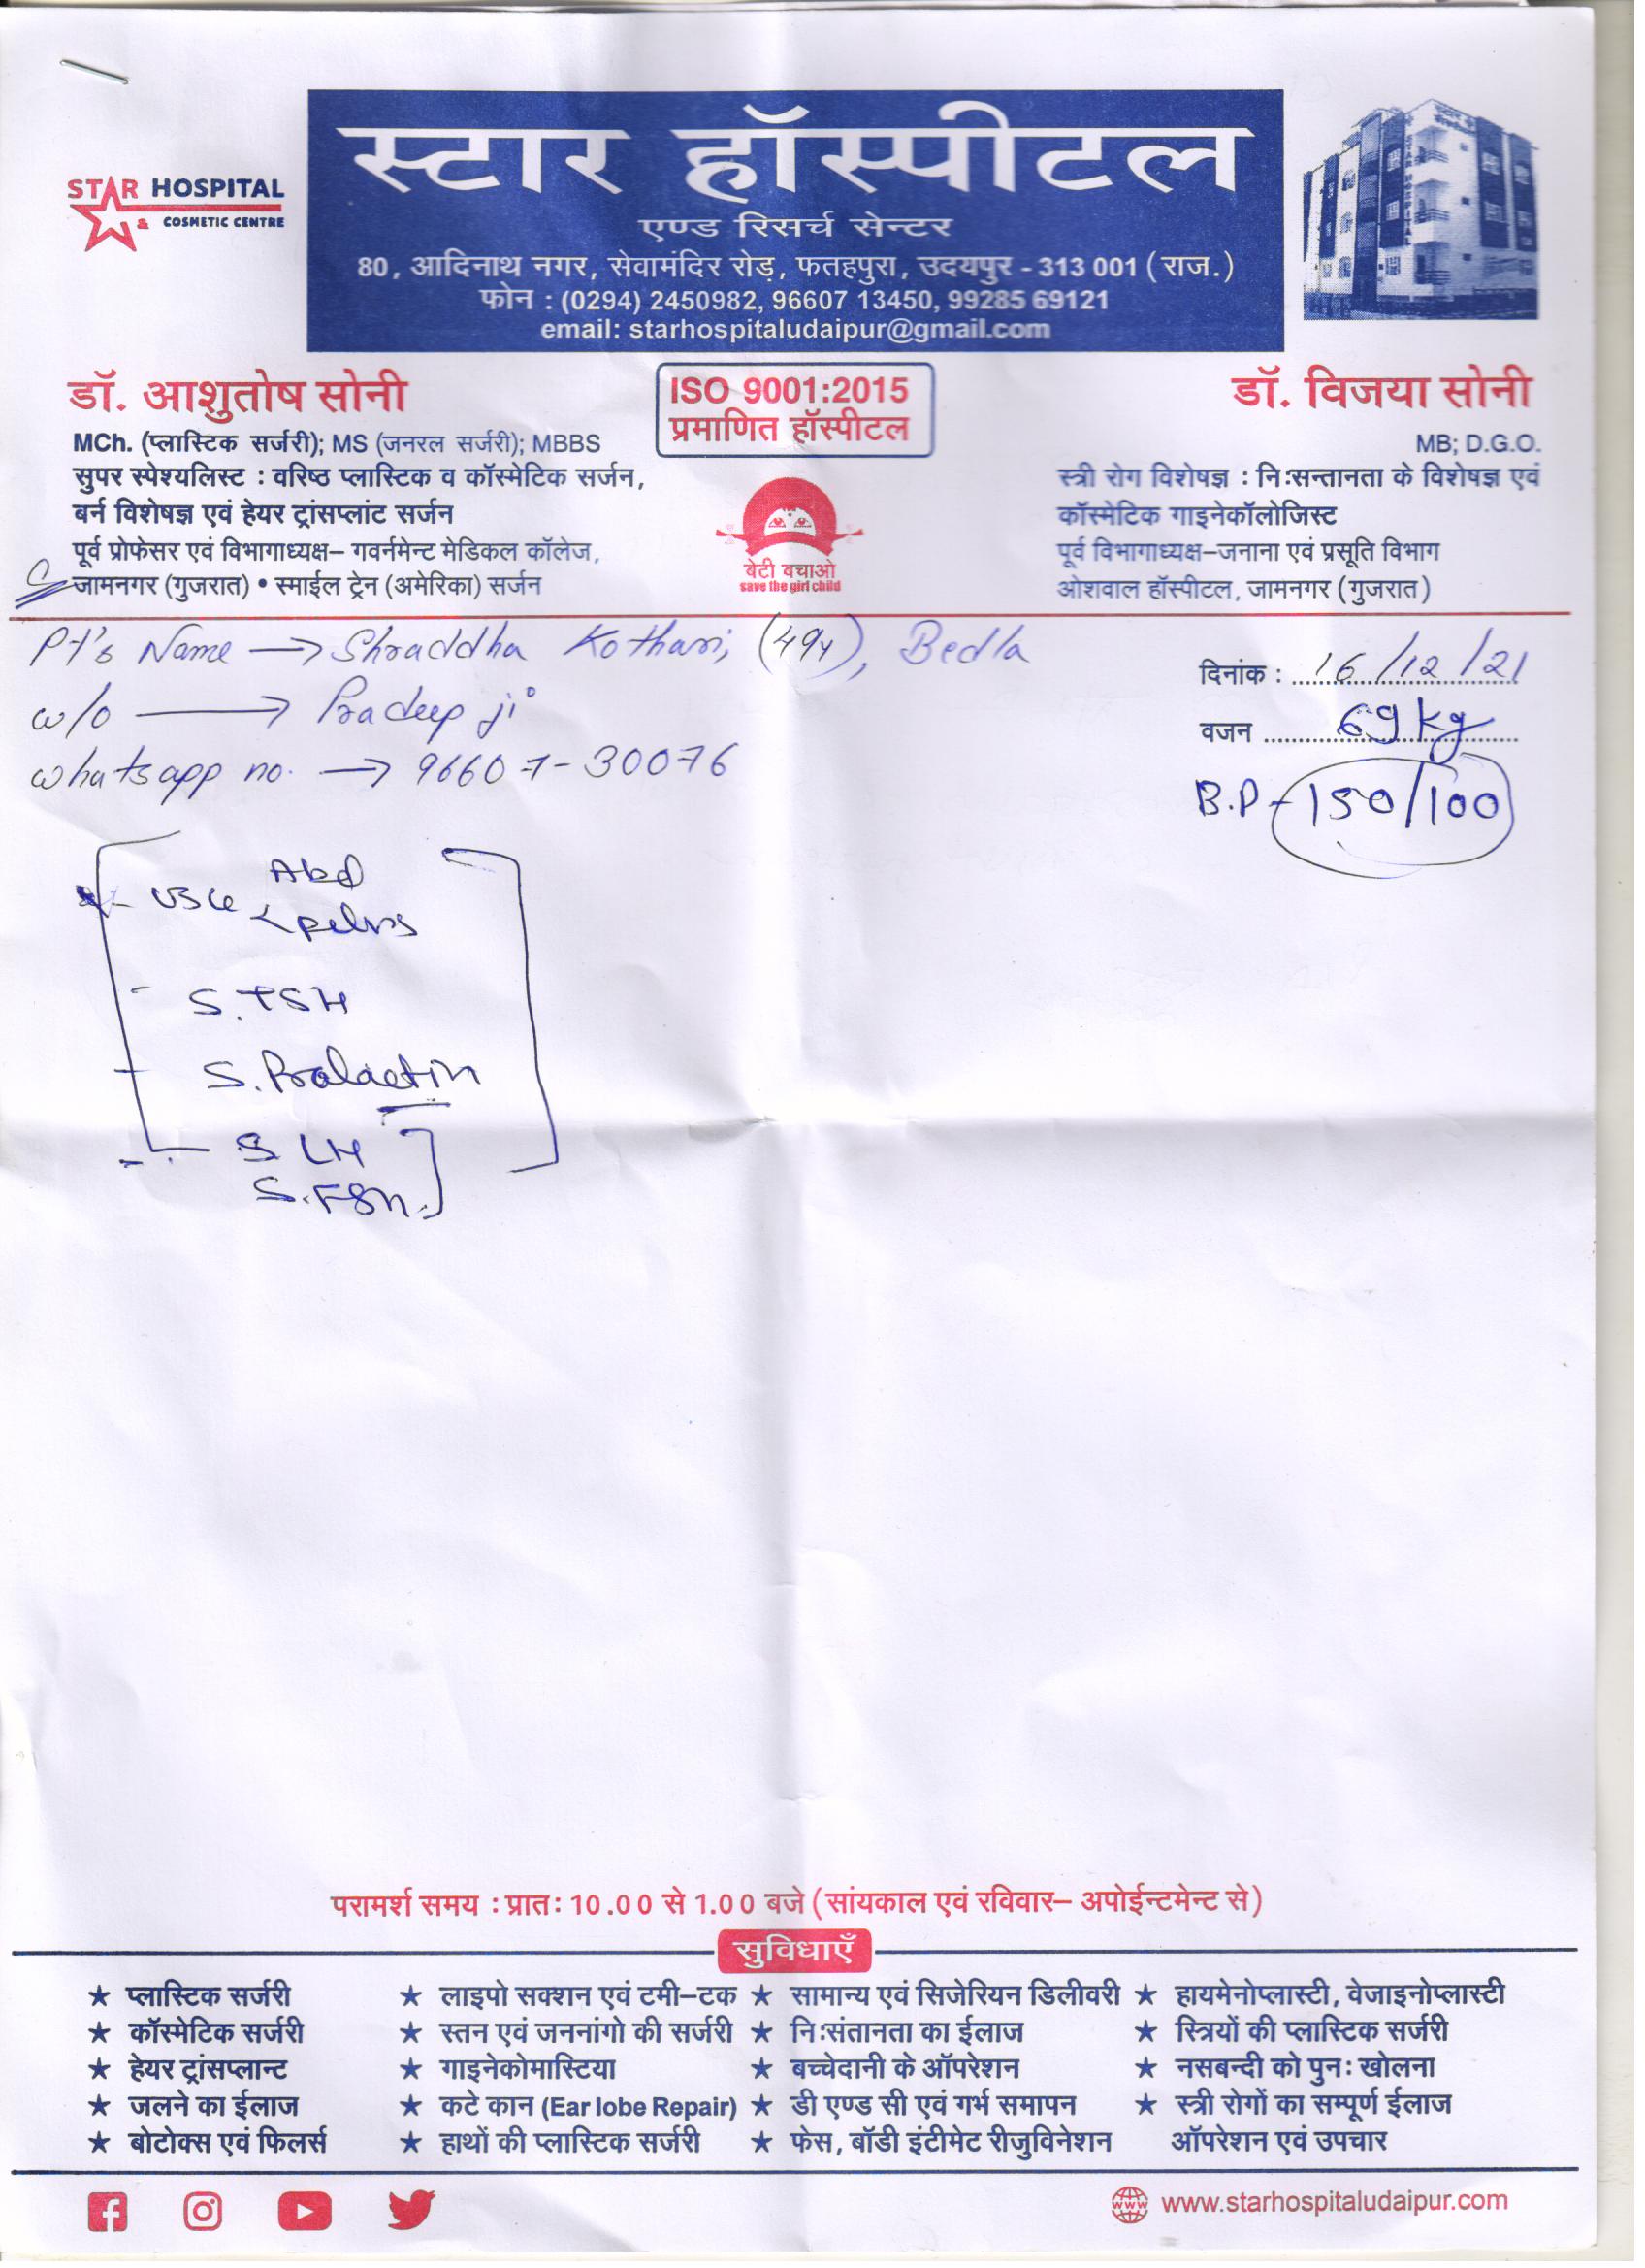 STAR HOSPITAL
& COSMETIC CENTRE
स्टार हॉस्पीटल
एण्ड रिसर्च सेन्टर
80, आदिनाथ नगर, सेवामंदिर रोड़, फतहपुरा, उदयपुर - 313 001 (राज.)
फोन : (0294) 2450982, 96607 13450, 99285 69121
email: starhospitaludaipur@gmail.com
डॉ. आशुतोष सोनी
MCh. (प्लास्टिक सर्जरी); MS (जनरल सर्जरी); MBBS
सुपर स्पेश्यलिस्ट : वरिष्ठ प्लास्टिक व कॉस्मेटिक सर्जन,
बर्न विशेषज्ञ एवं हेयर ट्रांसप्लांट सर्जन
पूर्व प्रोफेसर एवं विभागाध्यक्ष– गवर्नमेन्ट मेडिकल कॉलेज,
जामनगर (गुजरात) • स्माईल ट्रेन (अमेरिका) सर्जन
ISO 9001:2015
प्रमाणित हॉस्पीटल
बेटी बचाओ
save the girl child
डॉ. विजया सोनी
MB; D.G.O.
स्त्री रोग विशेषज्ञ : निःसन्तानता के विशेषज्ञ एवं
कॉस्मेटिक गाइनेकॉलोजिस्ट
पूर्व विभागाध्यक्ष–जनाना एवं प्रसूति विभाग
ओशवाल हॉस्पीटल, जामनगर (गुजरात)
Pt's Name → Shraddha Kothari, (49y), Bedla
w/o → Pradeep ji
whatsapp no. → 96607-30076
दिनांक : 16/12/21
वजन 69 kg
B.P - 150/100
USG < Abd
pelvis
- S. TSH
- S. Prolactin
- S LH
S. FSH.
परामर्श समय : प्रातः 10.00 से 1.00 बजे (सांयकाल एवं रविवार– अपोईन्टमेन्ट से)
सुविधाएँ
★ प्लास्टिक सर्जरी ★ लाइपो सक्शन एवं टमी–टक ★ सामान्य एवं सिजेरियन डिलीवरी ★ हायमेनोप्लास्टी, वेजाइनोप्लास्टी
★ कॉस्मेटिक सर्जरी ★ स्तन एवं जननांगो की सर्जरी ★ निःसंतानता का ईलाज ★ स्त्रियों की प्लास्टिक सर्जरी
★ हेयर ट्रांसप्लान्ट ★ गाइनेकोमास्टिया ★ बच्चेदानी के ऑपरेशन ★ नसबन्दी को पुनः खोलना
★ जलने का ईलाज ★ कटे कान (Ear lobe Repair) ★ डी एण्ड सी एवं गर्भ समापन ★ स्त्री रोगों का सम्पूर्ण ईलाज
★ बोटोक्स एवं फिलर्स ★ हाथों की प्लास्टिक सर्जरी ★ फेस, बॉडी इंटीमेट रीजुविनेशन ऑपरेशन एवं उपचार
www.starhospitaludaipur.com